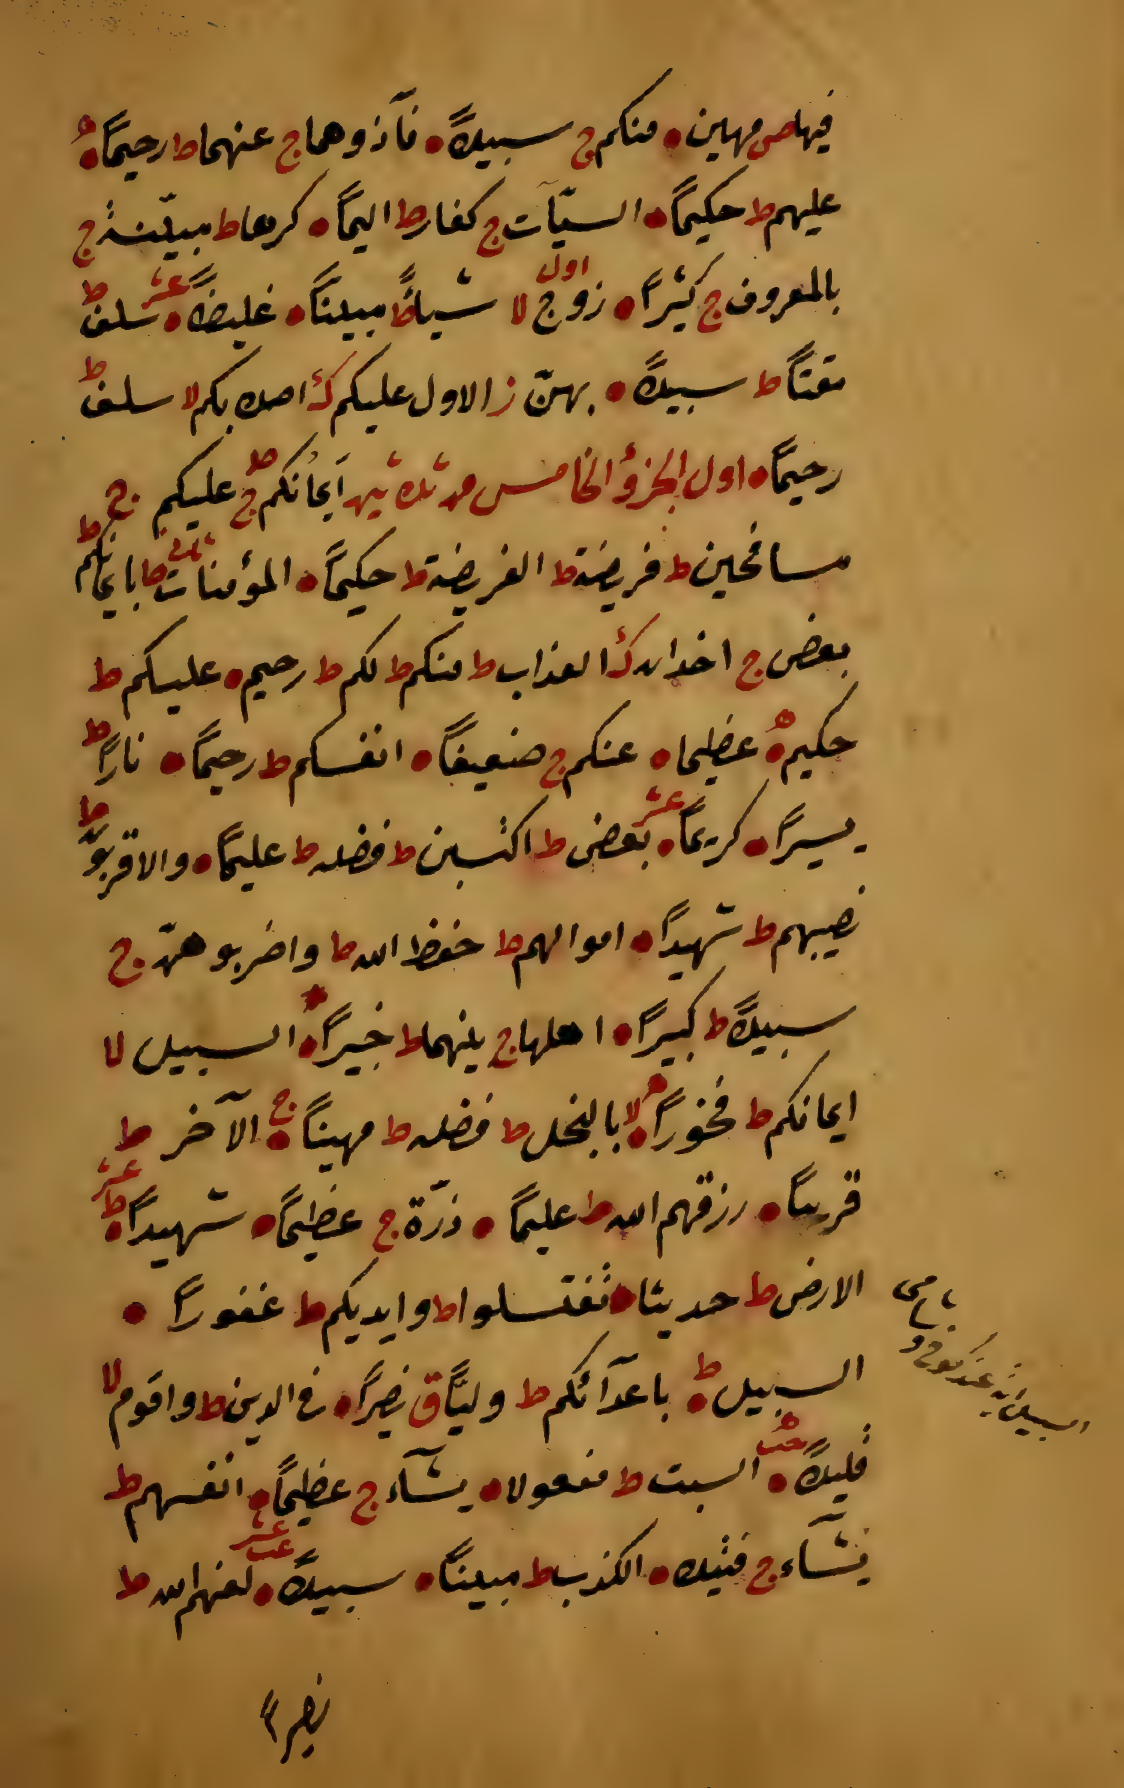 فيها ص مهين • منكم ج سبيلاً • فآذوهما ج عنهما ط رحيماً •
عليهم ط حكيماً • السيّآت ج كفار ط اليماً • كرها ط مبيّنة ج
بالمعروف ج كثيراً • زوج اول لا شيأً ط مبيناً • غليظاً • عشر سلف ط
مقتاً ط سبيلاً • بهنّ ز الاول عليكم ك اصلابكم لا سلف ط
رحيماً • اول الجزؤ الخامس ايمانكم ج عليكم ج
مسافحين ط فريضة ط الفريضة ط حكيماً • المؤمنات ط بايمانكم ط
بعض ج اخدان ك العذاب ط منكم ط لكم ط رحيم • عليكم ط
حكيم • عظيما • عنكم ج ضعيفاً • انفسكم ط رحيماً • ناراً ط
يسيراً • كريماً • عشر بعض ط اكتسبن ط فضله ط عليماً • والاقربون ط
نصيبهم ط شهيداً • اموالهم ط حفظ الله ط واضربوهنّ ج
سبيلاً ط كبيراً • اهلها ج بينهما ط خبيراً • السبيل لا
ايمانكم ط فخوراً • لا بالبخل ط فضله ط مهيناً • ج الآخر ط
قريناً • رزقهم الله ط عليماً • ذرّة ج عظيماً • شهيداً • ط عشر
الارض ط حديثا • تغتسلوا ط وايديكم ط غفوراً •
السبيل • ط باعدآئكم ط وليّاً ق نصيراً • في الدين ط واقوم لا
قليلاً • السبت ط مفعولا • يشآء ج عظيماً • انفسهم ط
يشآء ج فتيلا • الكذب ط مبيناً • سبيلاً • عشر لعنهم الله ط
نصيراً